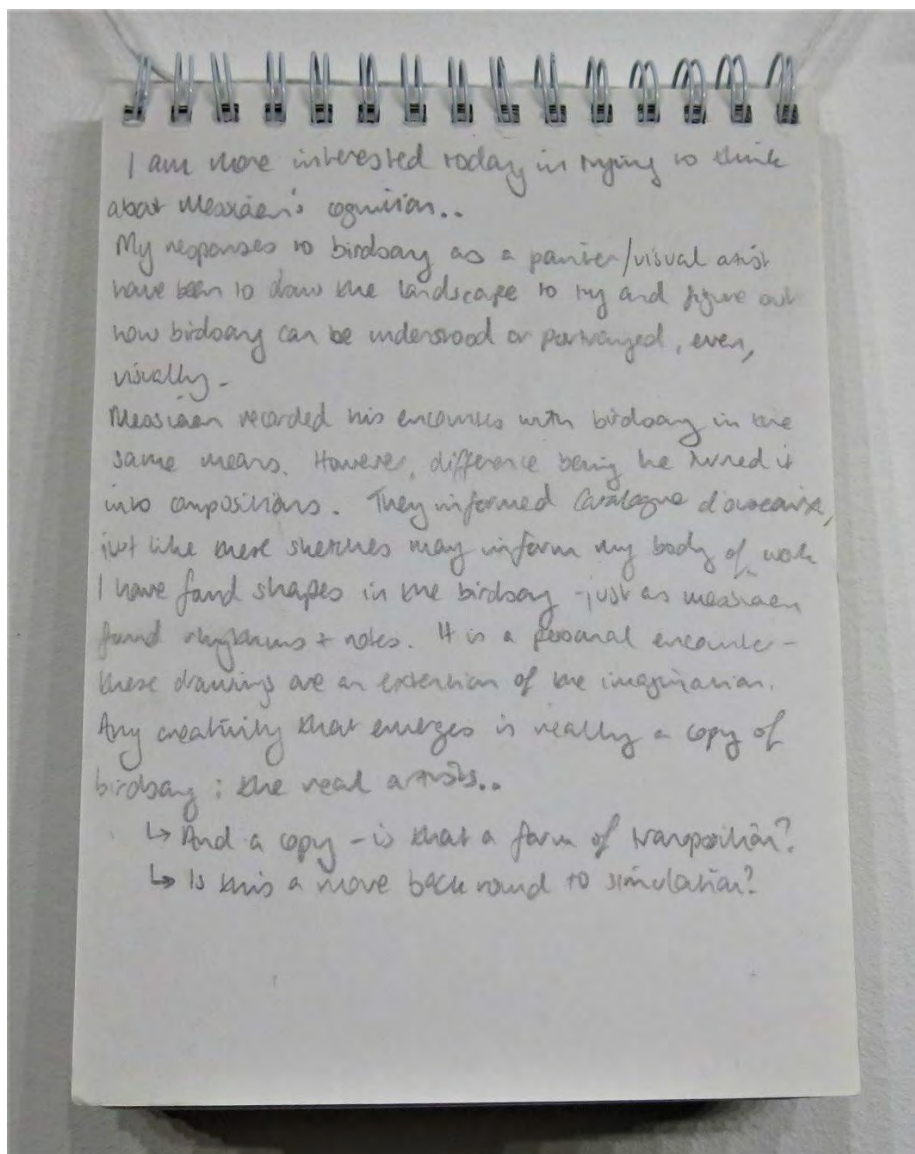 I am more interested today in trying to think
about Messiaen's cognition..
My responses to birdsong as a painter/visual artist
have been to draw the landscape to try and figure out
how birdsong can be understood or portrayed, even,
visually -
Messiaen recorded his encounters with birdsong in the
same means. However, difference being he turned it
into compositions. They informed Catalogue d'oiseaux,
just like these sketches may inform my body of work
I have found shapes in the birdsong - just as messiaen
found rhythms + notes. It is a personal encounter -
these drawings are an extention of the imagination.
Any creativity that emerges is really a copy of
birdsong ; the real artists..
↳ And a copy - is that a form of transposition?
↳ Is this a move back round to simulation?